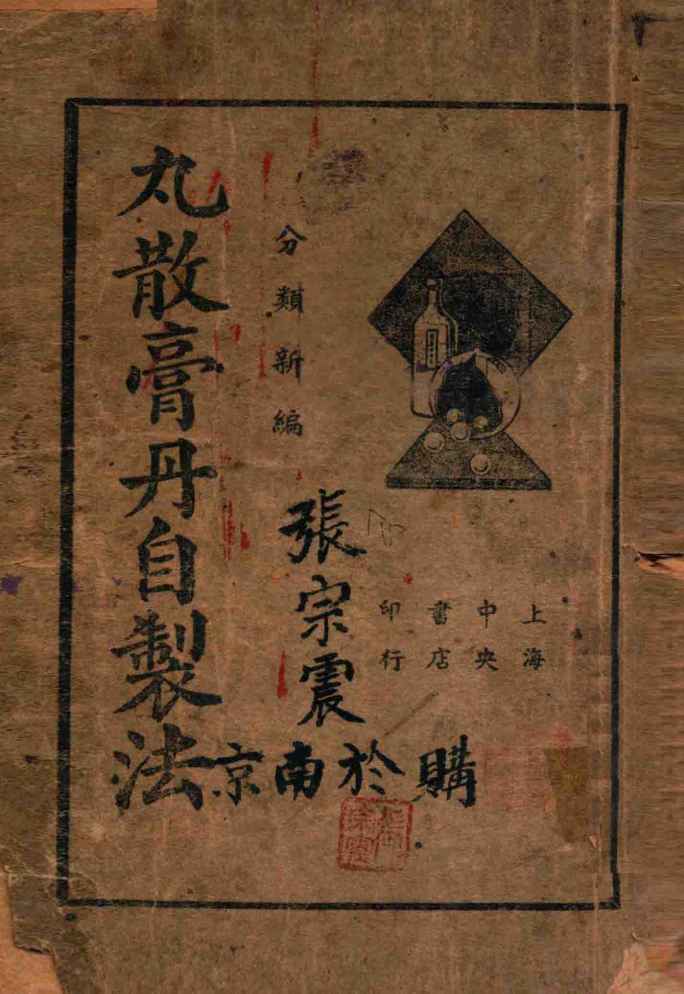 上海
中央
書店
印行
分類新編
丸散膏丹自製法
張宗震
購於南京